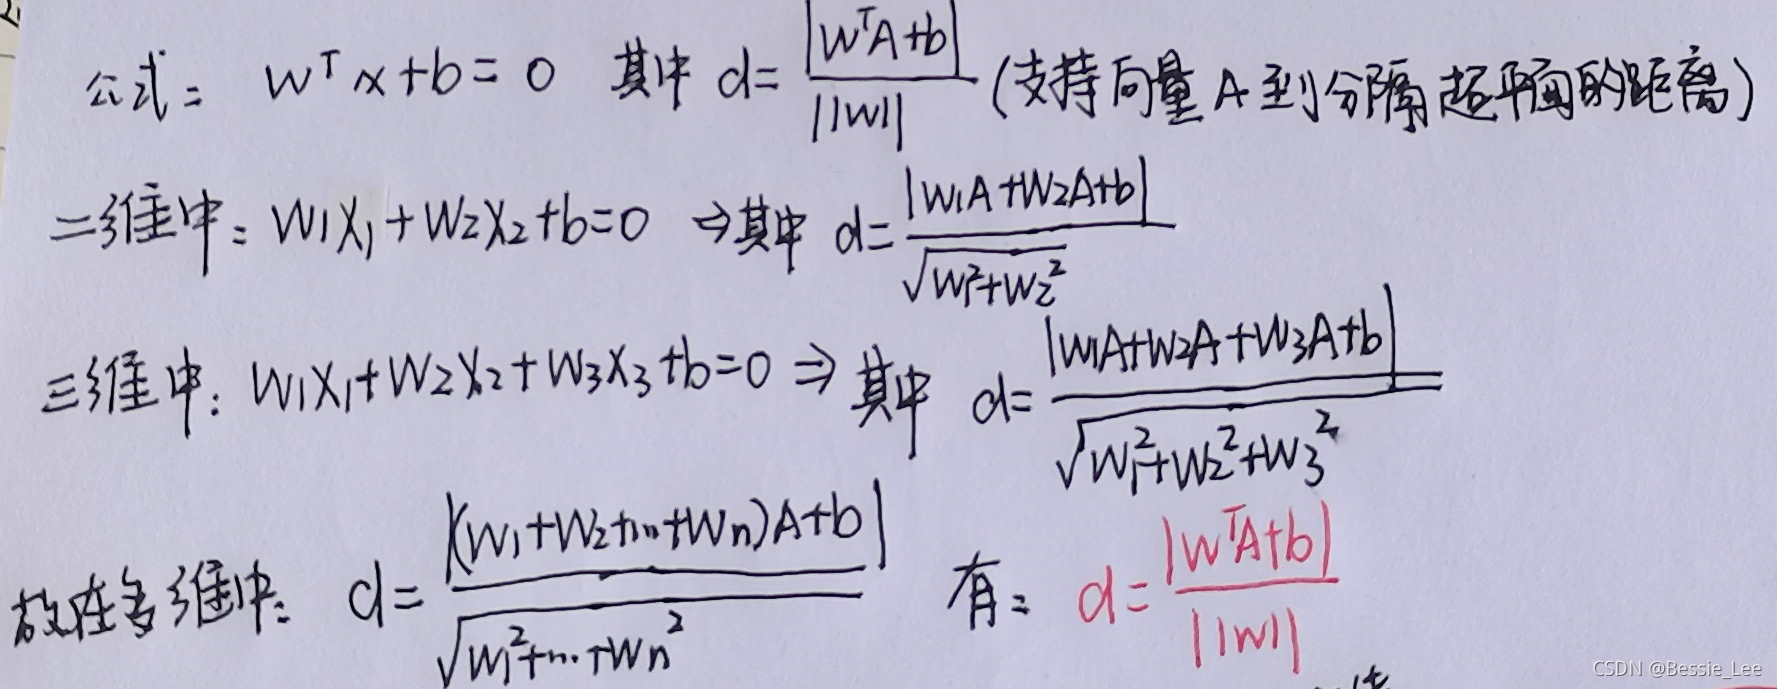 公式: W^T x+b=0 其中 d=|W^T A+b|/||W|| (支持向量A到分隔超平面的距离)
二维中: W1X1+W2X2+b=0 ⇒其中 d=|W1A+W2A+b|/√(W1²+W2²)
三维中: W1X1+W2X2+W3X3+b=0 ⇒ 其中 d=|W1A+W2A+W3A+b|/√(W1²+W2²+W3²)
故在多维中: d=|(W1+W2+...+Wn)A+b|/√(W1²+...+Wn²) 有: d=|W^T A+b|/||W||
CSDN @Bessie_Lee